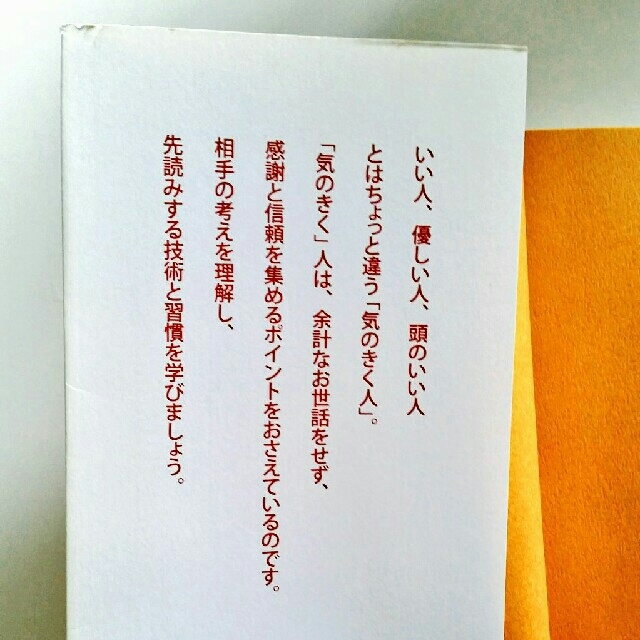 いい人、優しい人、頭のいい人
とはちょっと違う「気のきく人」。
「気のきく」人は、余計なお世話をせず、
感謝と信頼を集めるポイントをおさえているのです。
相手の考えを理解し、
先読みする技術と習慣を学びましょう。